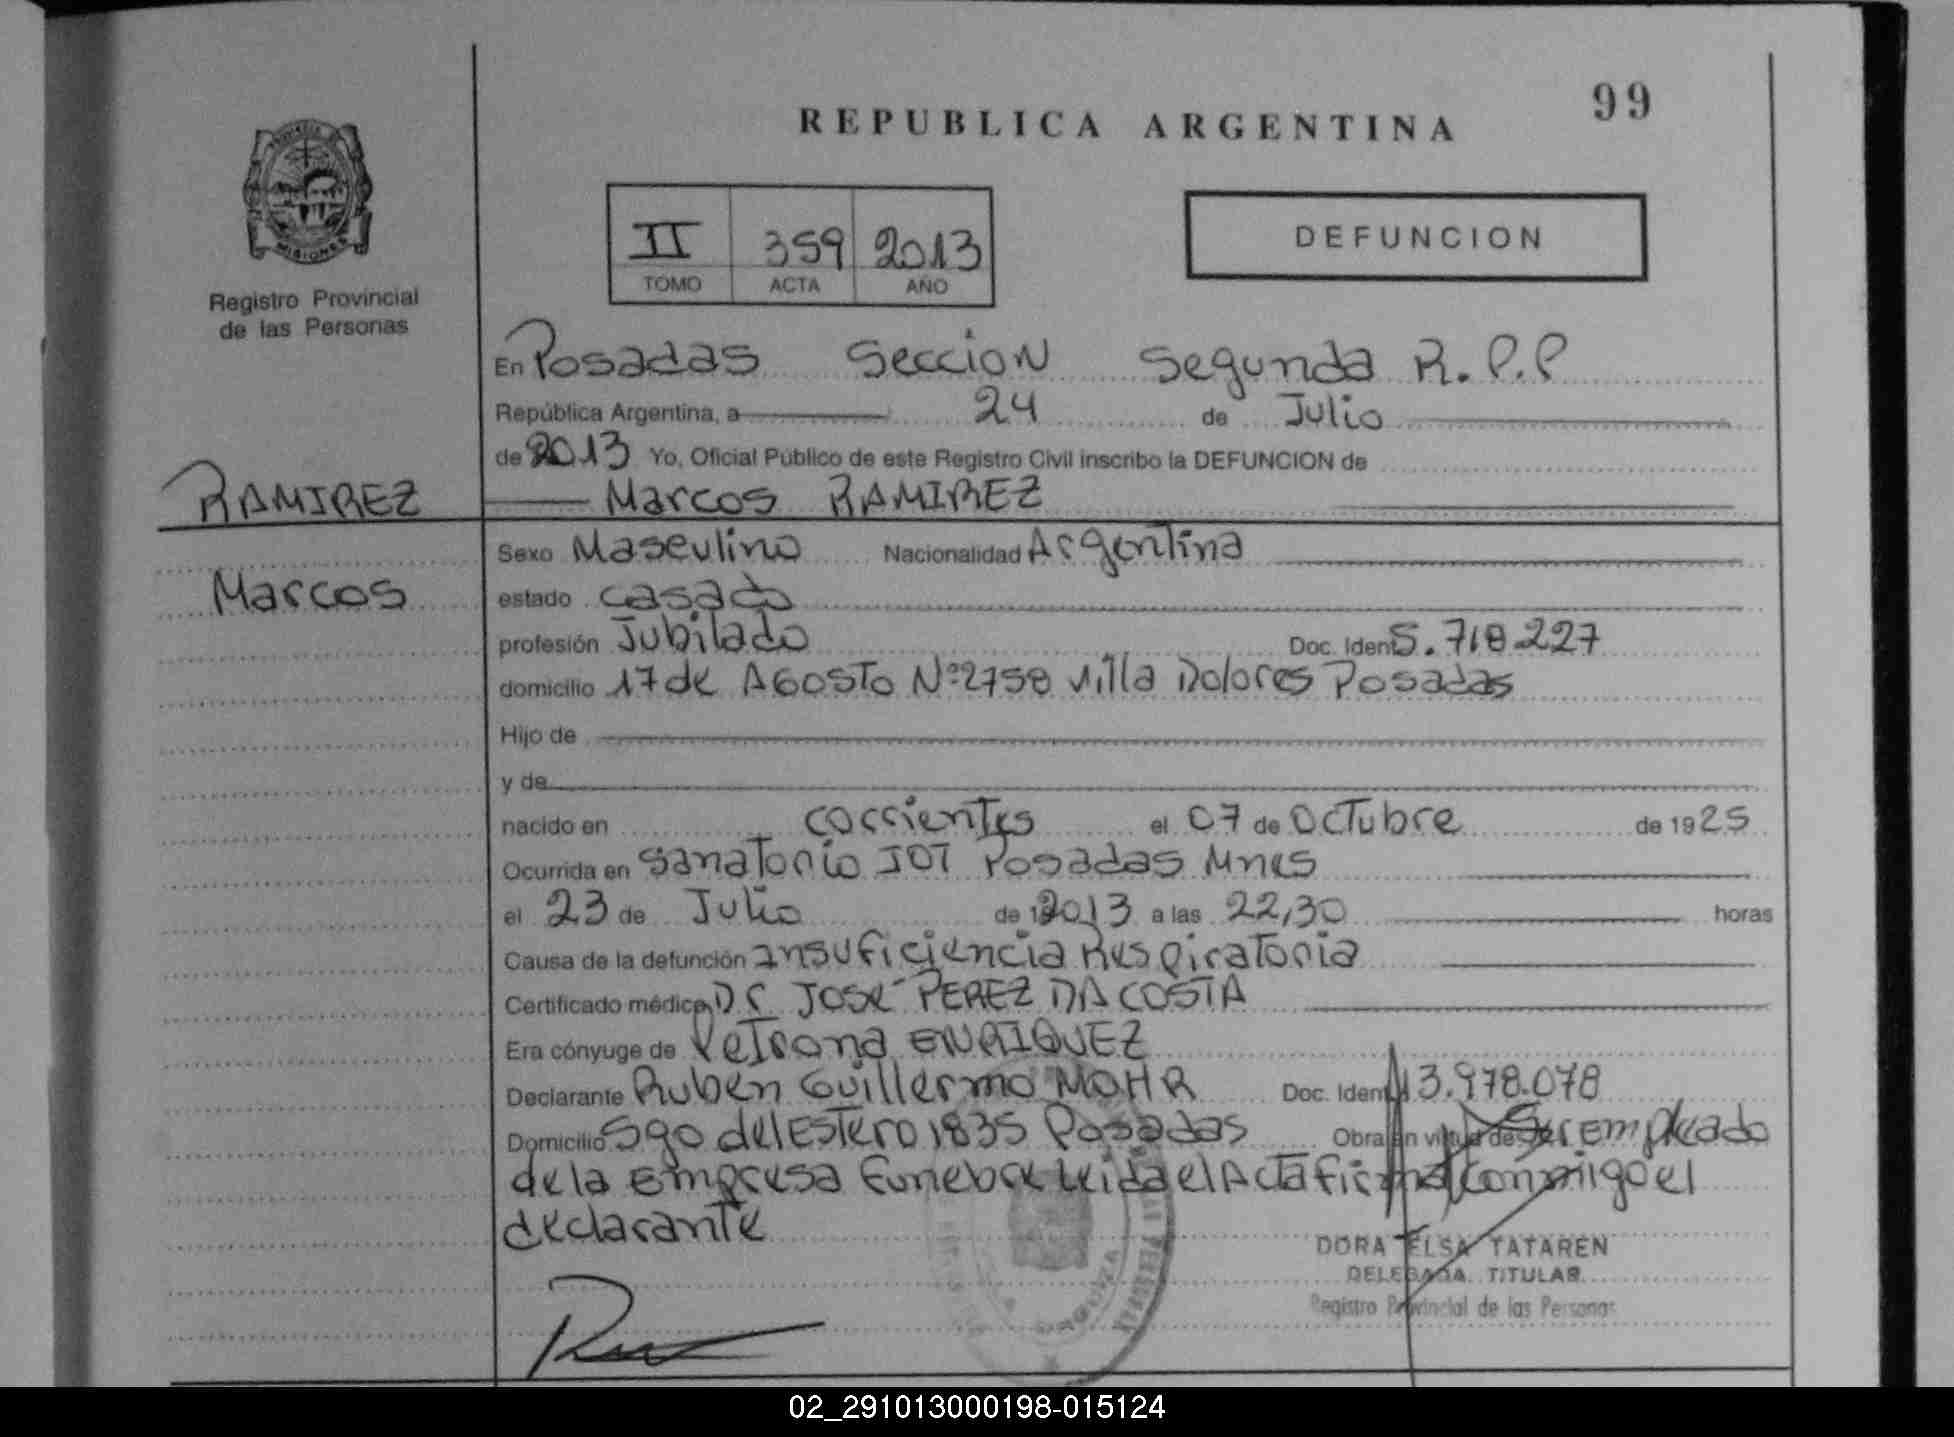 99
REPUBLICA ARGENTINA
MISIONES
Registro Provincial
de las Personas
II 359 2013
TOMO ACTA AÑO
DEFUNCION
En Posadas Seccion Segunda R.P.P
República Argentina, a 24 de Julio
de 2013 Yo, Oficial Público de este Registro Civil inscribo la DEFUNCION de
RAMIREZ
Marcos RAMIREZ
Marcos
Sexo Masculino Nacionalidad Argentina
estado casado
profesión Jubilado Doc. Ident 5.718.227
domicilio 17 de AGOSTO Nº2758 Villa Dolores Posadas
Hijo de
y de
nacido en Corrientes el 07 de Octubre de 1925
Ocurrida en Sanatorio IOT Posadas Mnes
el 23 de Julio de 2013 a las 22,30 horas
Causa de la defunción Insuficiencia Respiratoria
Certificado médico Dr JOSE PEREZ DA COSTA
Era cónyuge de Petrona ENRIQUEZ
Declarante Ruben Guillermo MOHR Doc. Ident 13.978.078
Domicilio Sgo del Estero 1835 Posadas Obra en virtud de Ser empleado
de la Empresa Funebre Leida el Acta firma conmigo el
declarante
DORA ELSA TATAREN
DELEGADA TITULAR
Registro Provincial de las Personas
02_291013000198-015124